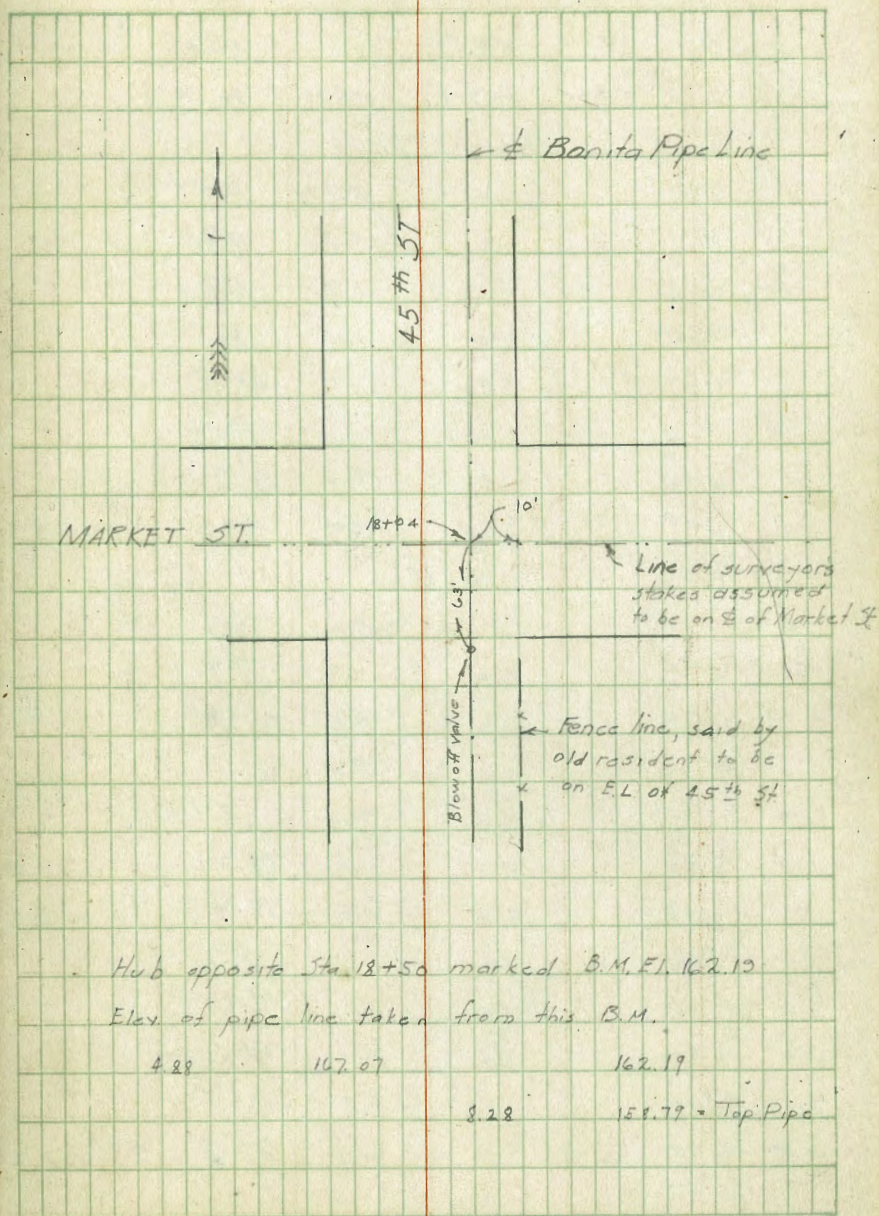 ℄ Bonita Pipe Line
45th ST
10'
18+04
MARKET ST.
63'
Line of surveyor's
stakes assumed
to be on ℄ of Market St
Blowoff valve
Fence line, said by
old resident to be
on E.L of 45th St
Hub opposite Sta. 18+50 marked B.M. El. 162.19
Elev. of pipe line taken from this B.M.
4.88 167.07 162.19
8.28 158.79 = Top Pipe